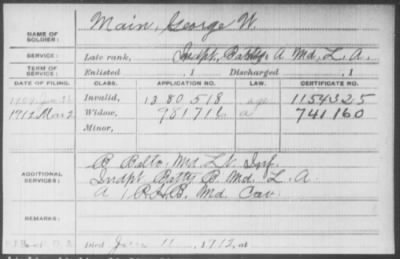 NAME OF SOLDIER: Main, George W.
SERVICE: Late rank, Indpt. Batty A Md. L. A.
TERM OF SERVICE: Enlisted , 1 Discharged , 1
DATE OF FILING. CLASS. APPLICATION NO. LAW. CERTIFICATE NO.
Invalid, 1380518 1154325
1912 Widow, 981716 a 741160
Minor,
ADDITIONAL SERVICES: B Balto. Md. Lt. Inf.
Indpt Batty B Md. L. A.
A 1 P.H.B. Md Cav
REMARKS:
Died 11, 1912, at